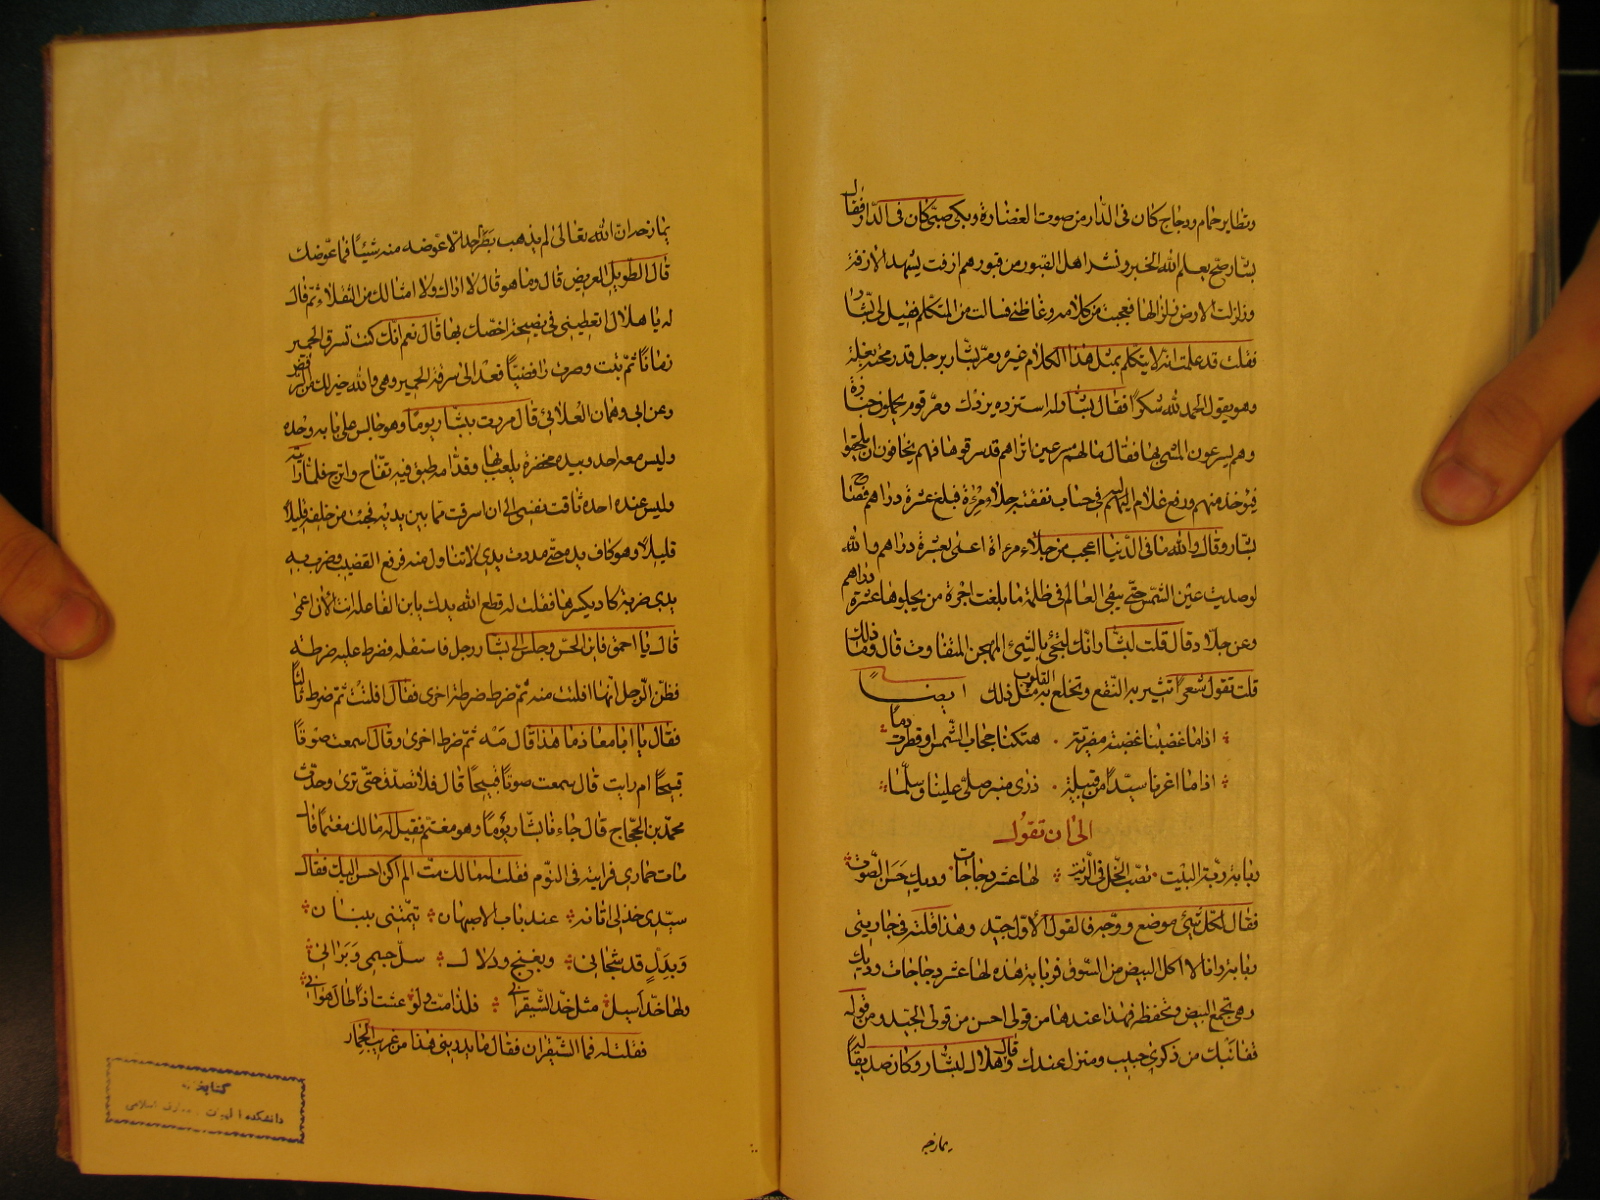 وتطاير حمام ودجاج كان فى الدار من صوت الغضارة وبكى صبى كان فى الدار فقال
بشار صح يعلم الله الخبر ونشر اهل القبور من قبورهم ازفت يشهد الازفة
وزلزلت الارض زلزالها فعجبت من كلامه وغاظنى فسالت من المتكلم فقيل لى بشار
فقلت قد علمت انه لا يتكلم بمثل هذا الكلام غيره ومر بشار برجل قد رمحته بغلة
وهو يقول الحمد لله شكرا فقال بشار له استزده يزدك ومر قوم يحملون جنازة
وهم يسرعون المشى بها فقال ما لهم مسرعين اتراهم قد سرقوها فهم يخافون ان يلحقوا
فيؤخذ منهم ورفع غلام اليه فى حساب نفقته جلاء مرءة فبلغ عشرة دراهم فصاح
بشار وقال والله ما فى الدنيا اعجب من جلاء مرءاة اعمى بعشرة دراهم والله
لو صديت عين الشمس حتى يبقى العالم فى ظلمة ما بلغت اجرة من يجلوها عشرة دراهم
وعن جلاد قال قلت لبشار انك لتجئ بالشيئ المهجن المتفاوت قال وما ذلك
قلت تقول شعرا تثير به النقع وتخلع به القلوب مثل ذلك ايضا
اذا ما غضبنا غضبة مضرية . هتكنا حجاب الشمس او قطرت دما
اذا ما اعرنا سيدا من قبيلة . ذرى منبر صلى علينا وسلما
الى ان تقول
ربابة ربة البيت تصب الخل فى الزيت لها عشر دجاجات وديك حسن الصوت
فقال لكل شيئ موضع ووجه فالقول الاول جيد وهذا قلته فى جاريتى
ربابة وانا لا اكل البيض من السوق فربابة هذه لها عشر دجاجات وديك
وهى تجمع البيض وتحفظه فهذا عندها من قولى احسن من قولى الجيد ومن قوله
قفا نبك من ذكرى حبيب ومنزل عندك وقال هلال لبشار وكان له صديقا
يمازحه
يمازحه ان الله تعالى لم يذهب بصر احد الا عوضه منه شيئا فما عوضك
قال الطويل العريض قال وما هو قال لا اراك ولا امثالك من الثقلاء ثم قال
له يا هلال اتطيعنى فى نصيحة اخصك بها قال نعم انك كنت تسرق الحمير
زمانا ثم تبت وصرت رافضيا فعد الى سرقة الحمير وهى والله خير لك من الرفض
وعن ابى دهمان الغلابى قال مررت ببشار يوما وهو جالس على بابه وحده
وليس معه احد وبيده مخصرة يلعب بها وقدامه طبق فيه تفاح واترج فلما رايته
وليس عنده احد تاقت نفسى الى ان اسرق مما بين يديه فجئت من خلفه قليلا
قليلا وهو كاف يده حتى مددت يدى لاتناول منه فرفع القضيب وضرب به
يدى ضربة كاد يكسرها فقلت له قطع الله يدك يابن الفاعله انت الان اعمى
قال يا احمق فاين الحس وجلس الى بشار رجل فاستثقله فضرط عليه ضرطة
فظن الرجل انها افلتت منه ثم ضرط ضرطة اخرى فقال افلتت ثم ضرط ثالثا
فقال يا ابا معاذ ما هذا قال مه ثم ضرط اخرى وقال اسمعت صوتا
قبيحا ام رايت قال سمعت صوتا قبيحا قال فلا تصدق حتى ترى وحدث
محمد بن الحجاج قال جاءنا بشار يوما وهو مغتم فقيل له مالك مغتما قال
مات حمارى فرايته فى النوم فقلت له مالك مت الم اكن احسن اليك فقال
سيدى خذ لى اتانه عند باب الاصبهان تيمتنى ببنان
وبدل قد شجانى وبغنج ودلال سل جسمى وبرانى
ولها خد اسيل مثل خد الشيقرانى فلذا مت ولو عشت اذا طال هوانى
فقلت له فما الشيقران فقال ما يدرينى هذا من غريب الحمار
كتابخانه
دانشكده الهيات ومعارف اسلامى